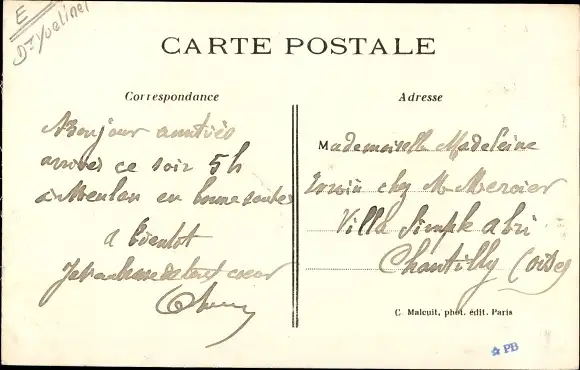 E
Dt Yvelines
CARTE POSTALE
Correspondance
Bonjour amitiés
arrivés ce soir 5h
à Meulan en bonne santé
a bientot
de tout coeur
Adresse
Mademoiselle Madeleine
Erwin chez M Mercier
Villa Simple abri
Chantilly (oise)
C. Malcuit, phot. édit. Paris
PB